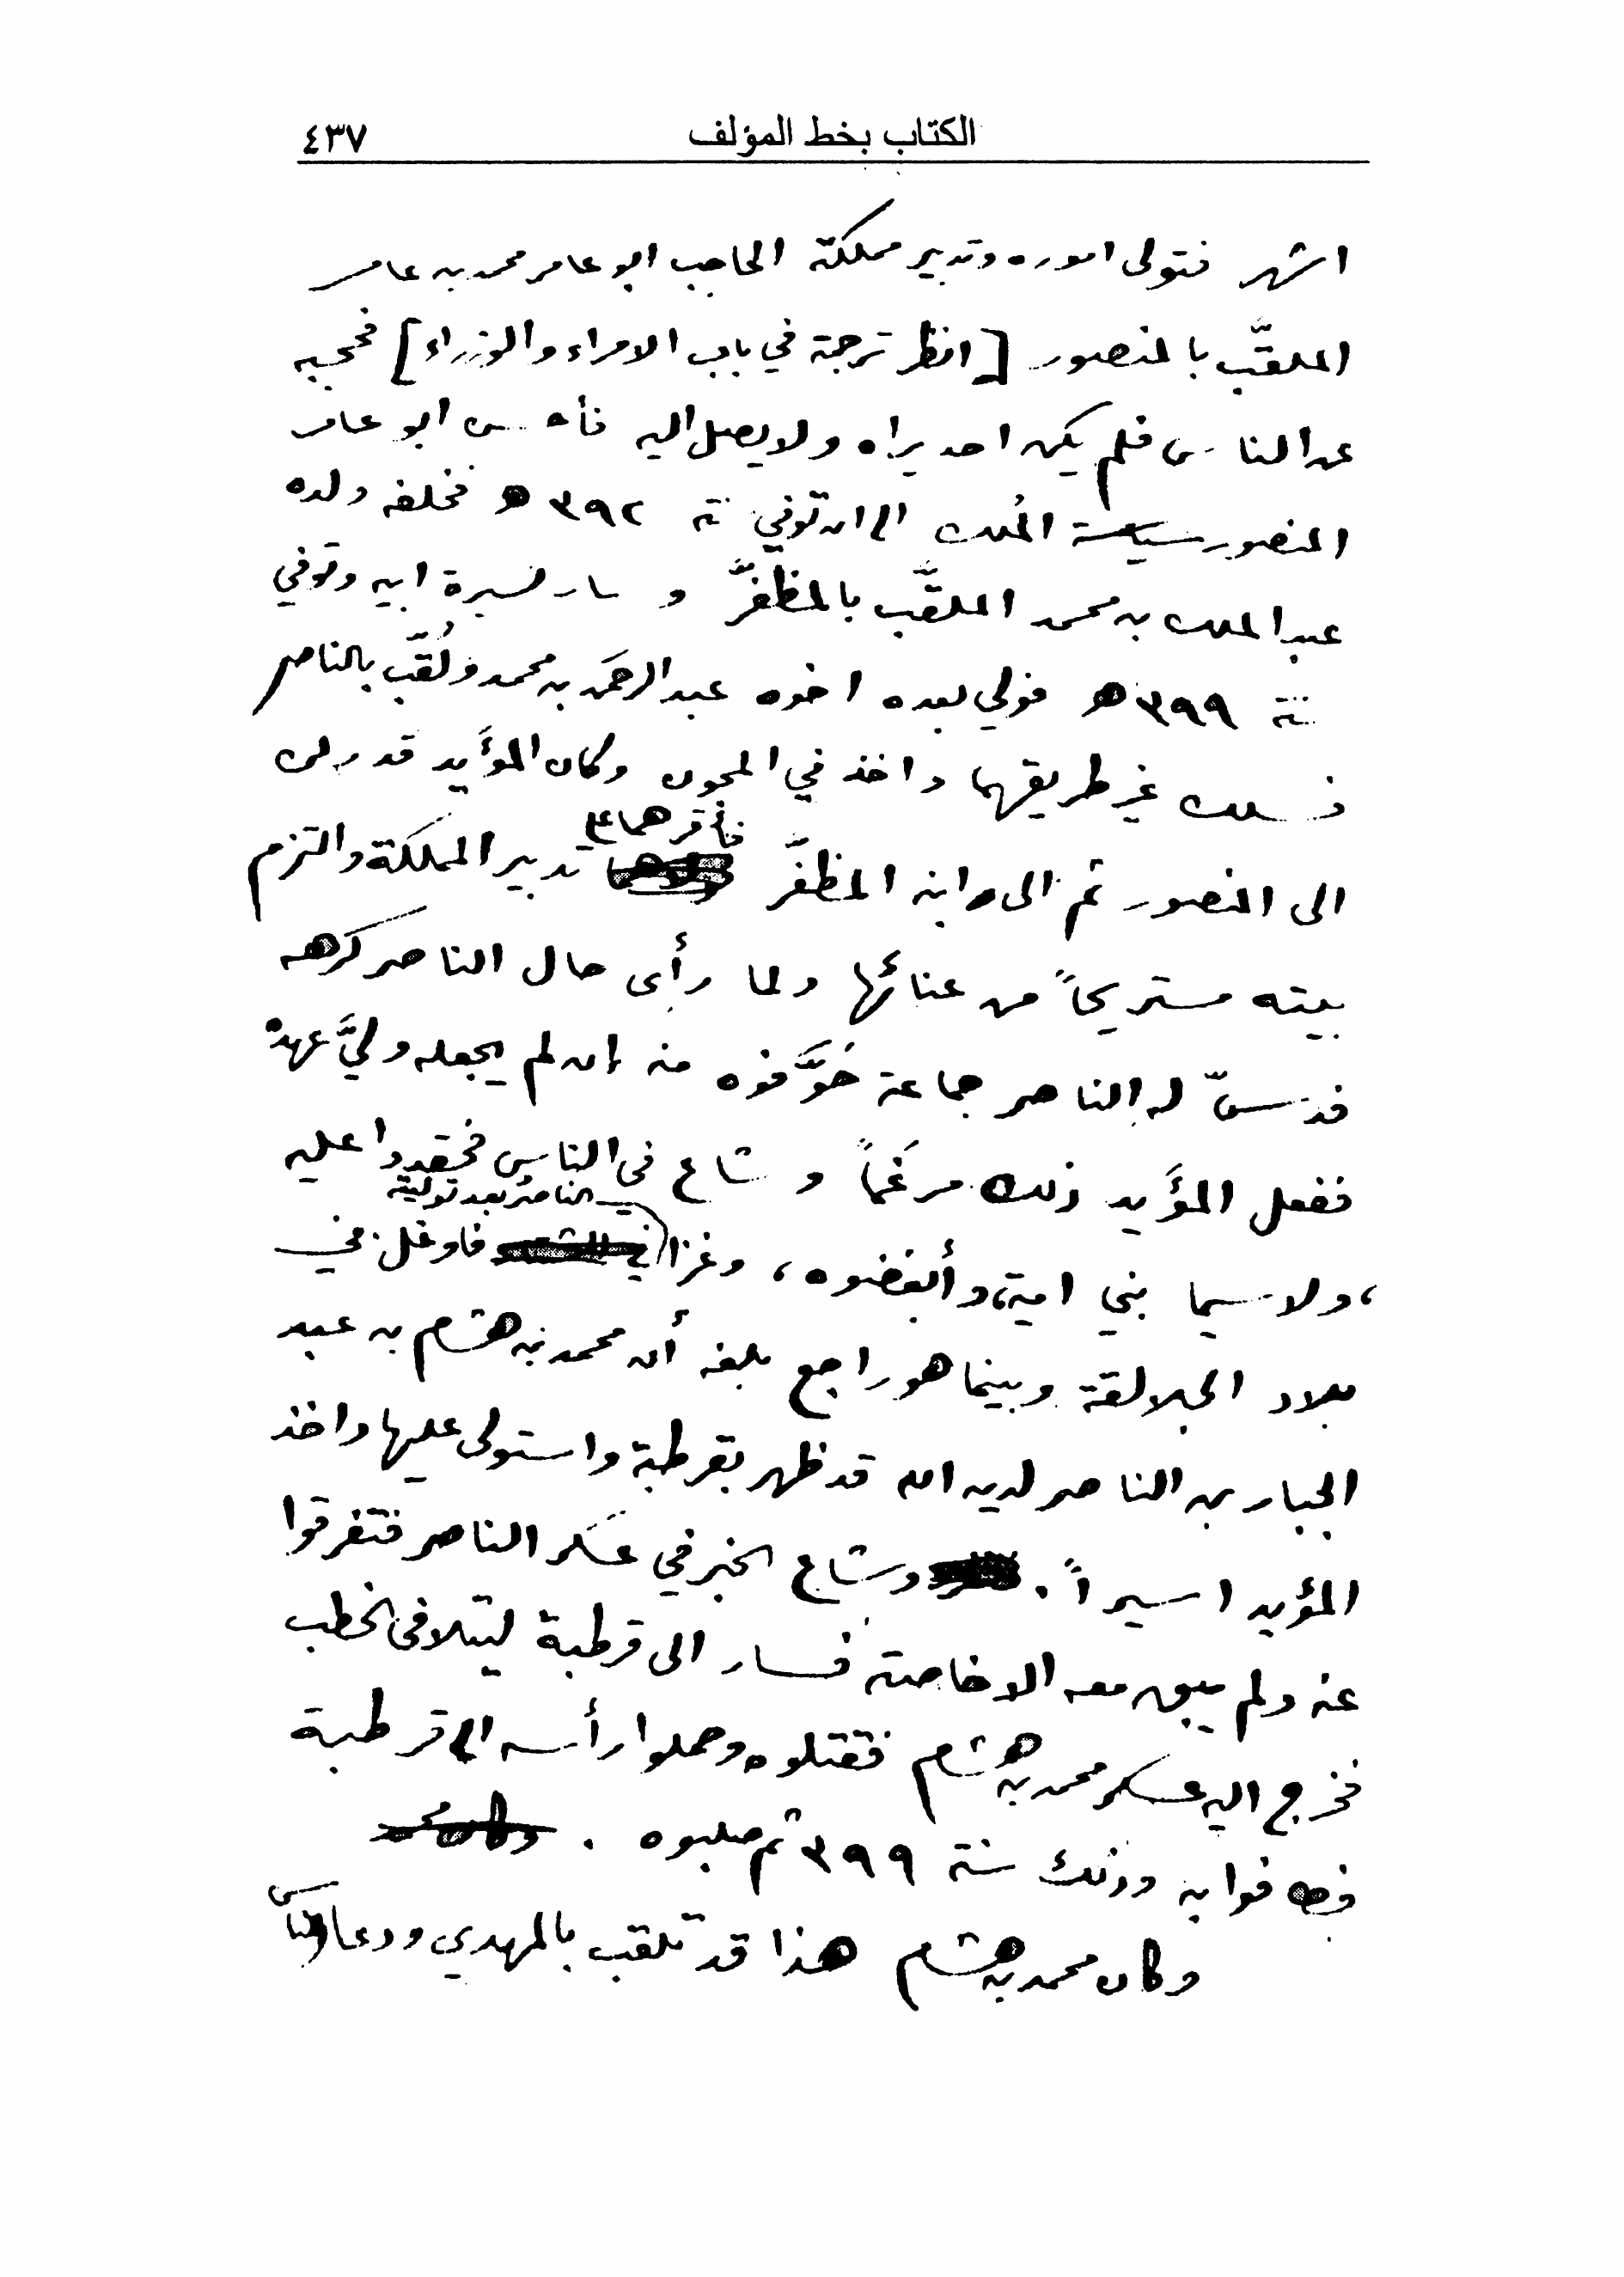 الكتاب بخط المؤلف ٤٣٧
اشهر فتولى اموره وتدبير مملكته الحاجب ابو عامر محمد بن عامر
الملقّب بالمنصور [انظر ترجمته في باب الامراء والوزراء] فحجبه
عن الناس فلم يكن احد يراه ولا يصل اليه فأحسن ابو عامر
المنصور سياسة المُلك الى ان توفي سنة ٣٩٢ ه فخلفه ولده
عبد الملك بن محمد الملقَّب بالمظفَّر وسار لسيرة ابيه وتوفي
سنة ٣٩٩ ه فولي بعده اخوه عبد الرحمَن بن محمد ولُقّب بالناصر
فسلك غير طريقهما واخذ في المجون وكان المؤَيد قد ركن
فأقرهما على
الى المنصور ثم الى ابنه المظفَّر تدبير المملكة والتزم
بيته مستريحاً من عنائها ولما رأى حال الناصر كرهه
فدسّ له الناصر جماعة خَوَّفوه منه إن لم يجعله وليَّ عهدْ
ففعل المؤَيد ذلك مرغَماً وشاع في الناس فحقدوا عليه
الناصر بعد توليته
، ولا سيما بني امية، وأبغضوه، وغزا فاوغل في
بلاد الجلالقة وبينما هو راجع بلغه أن محمد بن هشام بن عبد
الجبار بن الناصر لدين الله قد ظهر بقرطبة واستولى عليها واخذ
المؤيد اسيراً. وشاع الخبر في عسكر الناصر فتفرقوا
عنه ولم يبق معه الا خاصته فسار الى قرطبة ليتلافى الخطب
فخرج اليه عسكر محمد بن هشام فقتلوه وحملوا رأسه الى قرطبة
فطافوا به وذلك سنة ٣٩٩ ثم صلبوه . وكان محمد
وكان محمد بن هشام هذا قد تلقب بالمهدي ودعا الناس